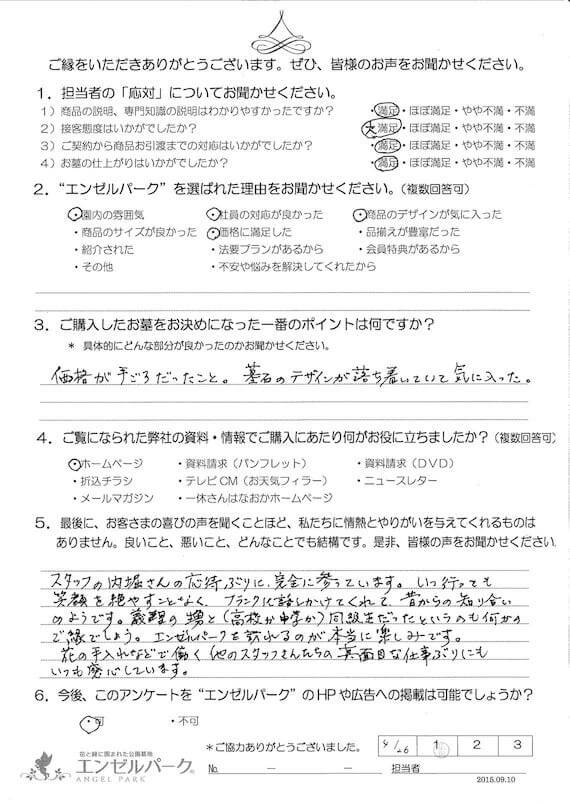 ご縁をいただきありがとうございます。ぜひ、皆様のお声をお聞かせください。
1. 担当者の「応対」についてお聞かせください。
1）商品の説明、専門知識の説明はわかりやすかったですか？ ・満足・ほぼ満足・やや不満・不満
2）接客態度はいかがでしたか？ 大満足・ほぼ満足・やや不満・不満
3）ご契約から商品お引渡までの対応はいかがでしたか？ ・満足・ほぼ満足・やや不満・不満
4）お墓の仕上がりはいかがでしたか？ ・満足・ほぼ満足・やや不満・不満
2. “エンゼルパーク”を選ばれた理由をお聞かせください。（複数回答可）
・園内の雰囲気 ・社員の対応が良かった ・商品のデザインが気に入った
・商品のサイズが良かった ・価格に満足した ・品揃えが豊富だった
・紹介された ・法要プランがあるから ・会員特典があるから
・その他 ・不安や悩みを解決してくれたから
3. ご購入したお墓をお決めになった一番のポイントは何ですか？
* 具体的にどんな部分が良かったのかお聞かせください。
価格が手ごろだったこと。墓石のデザインが落ち着いていて気に入った。
4. ご覧になられた弊社の資料・情報でご購入にあたり何がお役に立ちましたか？（複数回答可）
・ホームページ ・資料請求（パンフレット） ・資料請求（DVD）
・折込チラシ ・テレビCM（お天気フィラー） ・ニュースレター
・メールマガジン ・一休さんはなおかホームページ
5. 最後に、お客さまの喜びの声を聞くことほど、私たちに情熱とやりがいを与えてくれるものは
ありません。良いこと、悪いこと、どんなことでも結構です。是非、皆様の声をお聞かせください。
スタッフの内堀さんの応待ぶりに、完全に参っています。いつ行っても
笑顔を絶やすことなく、フランクに話しかけてくれて、昔からの知り合い
のようです。義理の甥と（高校か中学か）同級生だったというのも何かの
ご縁でしょう。エンゼルパークを訪れるのが本当に楽しみです。
花の手入れなどで働く他のスタッフさんたちの真面目な仕事ぶりにも
いつも感心しています。
6. 今後、このアンケートを“エンゼルパーク”のHPや広告への掲載は可能でしょうか？
・可 ・不可
*ご協力ありがとうございました。 4/26 1 2 3
花と緑に囲まれた公園墓地
エンゼルパーク®
ANGEL PARK
No. － － 担当者
2015.09.10